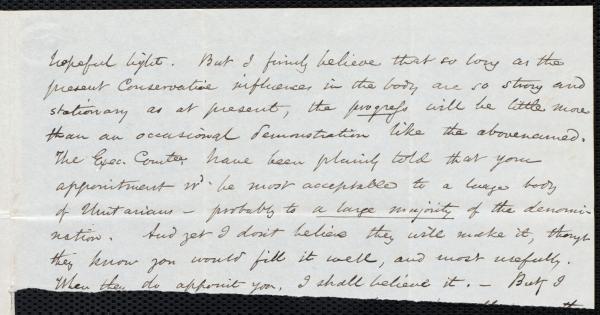 hopeful light. But I firmly believe that so long as the
present Conservative influences in the body are so strong and
stationary as at present, the progress will be little more
than an occasional demonstration like the abovenamed.
The Exec. Comtee have been plainly told that your
appointment wd. be most acceptable to a large body
of Unitarians – probably to a large majority of the denomi-
nation. And yet I don't believe they will make it, though
they know you would fill it well, and most usefully.
When they do appoint you, I shall believe it. – But I